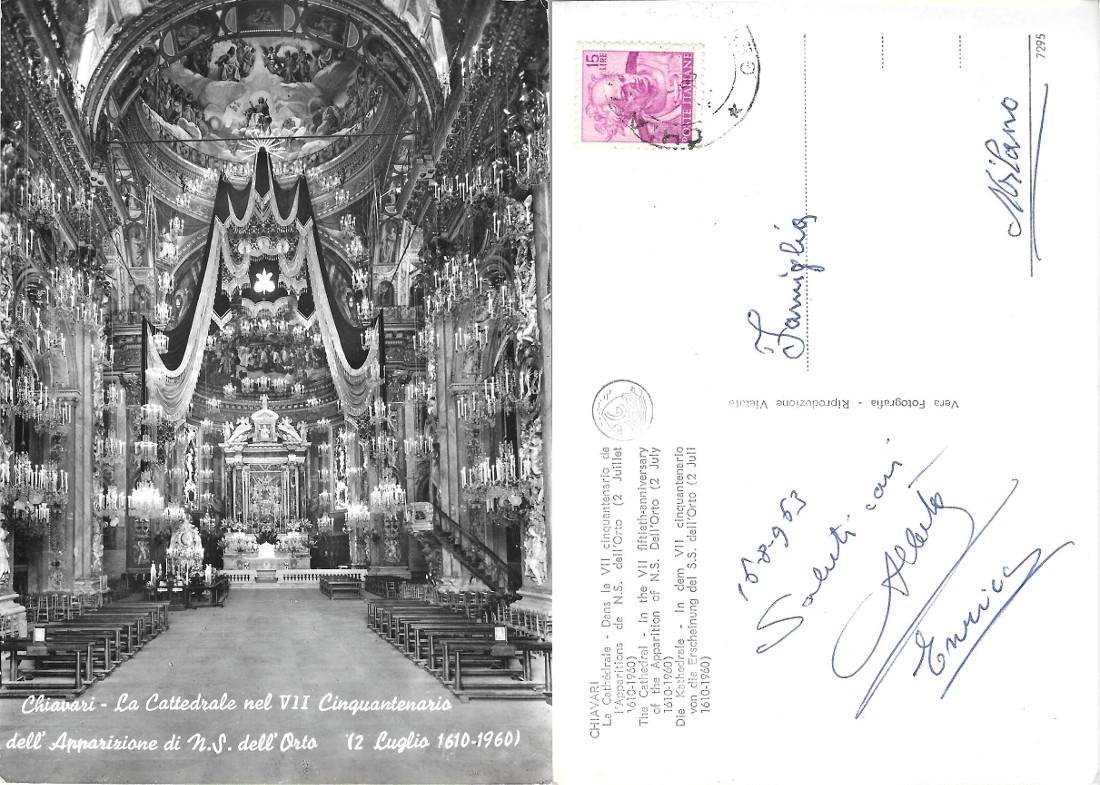 Chiavari - La Cattedrale nel VII Cinquantenario
dell'Apparizione di N.S. dell'Orto (2 Luglio 1610-1960)
CHIAVARI
La Cathédrale - Dans le VII cinquantenario de
l'Apparitions de N.S. dell'Orto (2 Juillet
1610-1960)
The Cathedral - In the VII fiftieth-anniversary
of the Apparition of N.S. Dell'Orto (2 July
1610-1960)
Die Kathedrale - In dem VII cinquantenario
von die Erscheinung del S.S. dell'Orto (2 Juli
1610-1960)
Saluti cari
Alberto
Enrica
Vera Fotografia - Riproduzione Vietata
15 LIRE
POSTE ITALIANE
Famiglia
Milano
7295